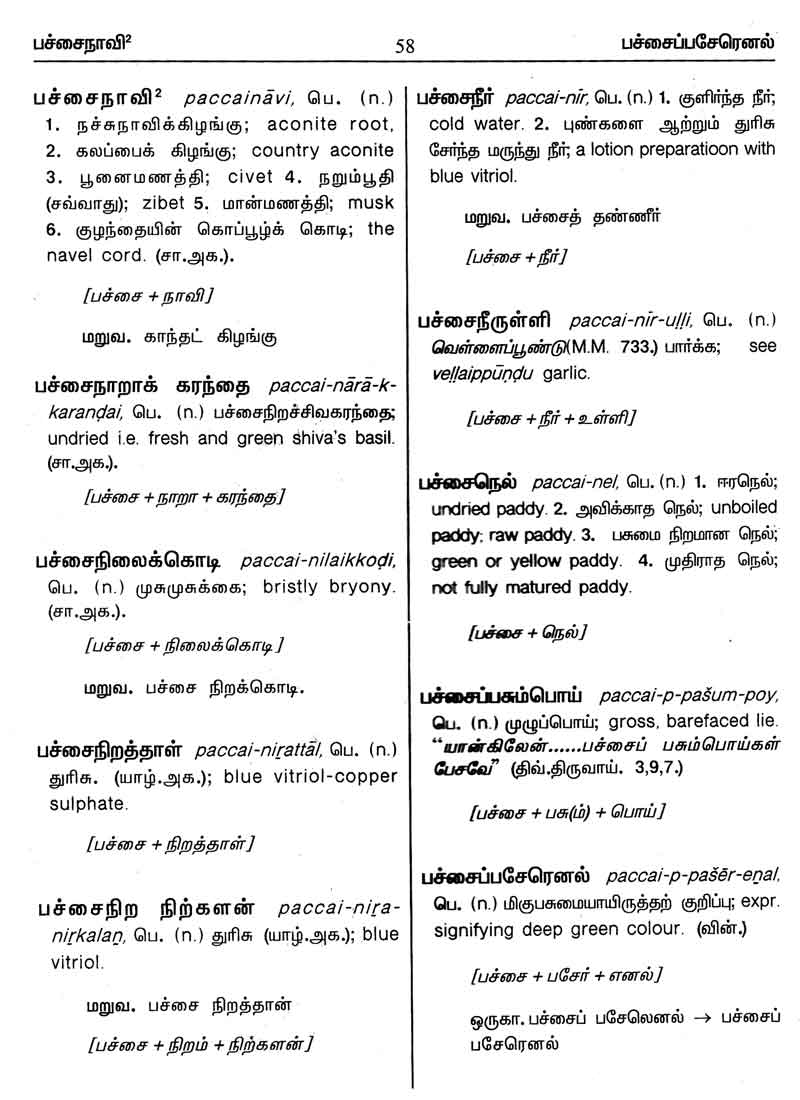 பச்சைநாவி² 58 பச்சைப்பசேரெனல்
பச்சைநாவி² paccaināvi, பெ. (n.)
1. நச்சுநாவிக்கிழங்கு; aconite root,
2. கலப்பைக் கிழங்கு; country aconite
3. பூனைமணத்தி; civet 4. நறும்பூதி
(சவ்வாது); zibet 5. மான்மணத்தி; musk
6. குழந்தையின் கொப்பூழ்க் கொடி; the
navel cord. (சா.அக.).
[பச்சை + நாவி]
மறுவ. காந்தட் கிழங்கு
பச்சைநாறாக் கரந்தை paccai-nārā-k-
karanḍai, பெ. (n.) பச்சைநிறச்சிவகரந்தை;
undried i.e. fresh and green shiva's basil.
(சா.அக.).
[பச்சை + நாறா + கரந்தை]
பச்சைநிலைக்கொடி paccai-nilaikkoḍi,
பெ. (n.) முசுமுசுக்கை; bristly bryony.
(சா.அக.).
[பச்சை + நிலைக்கொடி]
மறுவ. பச்சை நிறக்கொடி.
பச்சைநிறத்தாள் paccai-niṟattāḷ, பெ. (n.)
துரிசு. (யாழ்.அக.); blue vitriol-copper
sulphate.
[பச்சை + நிறத்தாள்]
பச்சைநிற நிற்களன் paccai-niṟa-
niṟkalaṉ, பெ. (n.) துரிசு (யாழ்.அக.); blue
vitriol.
மறுவ. பச்சை நிறத்தான்
[பச்சை + நிறம் + நிற்களன்]
பச்சைநீர் paccai-nīr, பெ. (n.) 1. குளிர்ந்த நீர்;
cold water. 2. புண்களை ஆற்றும் துரிசு
சேர்ந்த மருந்து நீர்; a lotion preparatioon with
blue vitriol.
மறுவ. பச்சைத் தண்ணீர்
[பச்சை + நீர்]
பச்சைநீருள்ளி paccai-nīr-uḷḷi, பெ. (n.)
வெள்ளைப்பூண்டு(M.M. 733.) பார்க்க; see
veḷḷaippūṇḍu garlic.
[பச்சை + நீர் + உள்ளி]
பச்சைநெல் paccai-nel, பெ. (n.) 1. ஈரநெல்;
undried paddy. 2. அவிக்காத நெல்; unboiled
paddy; raw paddy. 3. பசுமை நிறமான நெல்;
green or yellow paddy. 4. முதிராத நெல்;
not fully matured paddy.
[பச்சை + நெல்]
பச்சைப்பசும்பொய் paccai-p-pašum-poy,
பெ. (n.) முழுப்பொய்; gross, barefaced lie.
“யான்கிலேன்......பச்சைப் பசும்பொய்கள்
பேசவே” (திவ்.திருவாய். 3,9,7.)
[பச்சை + பசு(ம்) + பொய்]
பச்சைப்பசேரெனல் paccai-p-pašēr-eṉal,
பெ. (n.) மிகுபசுமையாயிருத்தற் குறிப்பு; expr.
signifying deep green colour. (வின்.)
[பச்சை + பசேர் + எனல்]
ஒருகா. பச்சைப் பசேலெனல் → பச்சைப்
பசேரெனல்